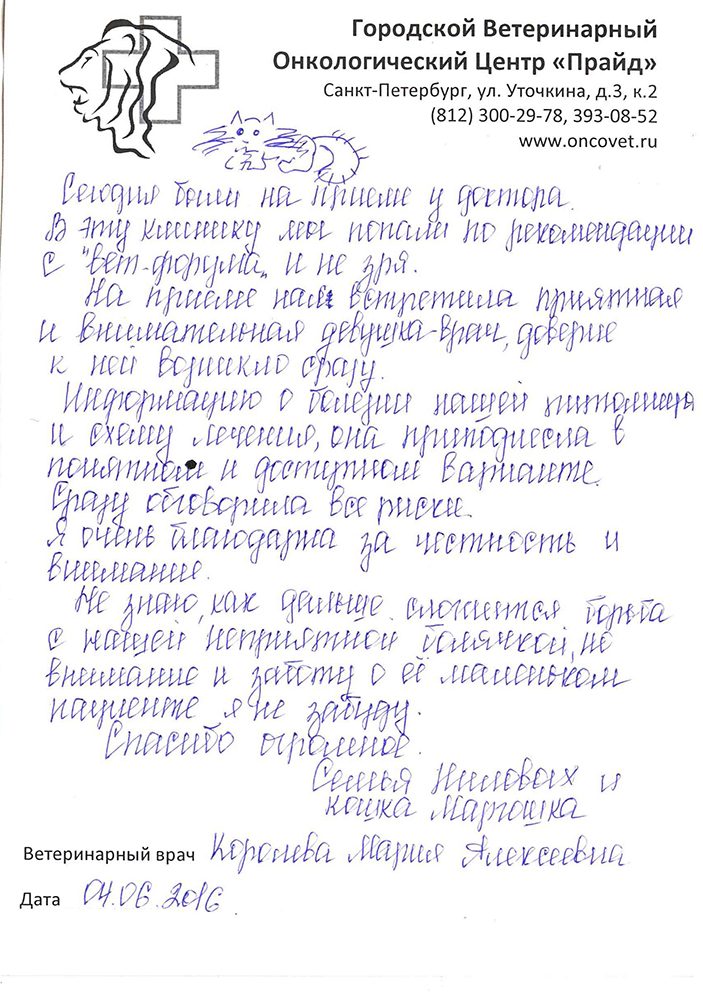 Городской Ветеринарный
Онкологический Центр «Прайд»
Санкт-Петербург, ул. Уточкина, д.3, к.2
(812) 300-29-78, 393-08-52
www.oncovet.ru
Сегодня были на приеме у доктора.
В эту клинику мы попали по рекомендации
с "вет-форума„ и не зря.
На приеме нас встретила приятная
и внимательная девушка-врач, доверие
к ней возникло сразу.
Информацию о болезни нашей питомицы
и схему лечения, она приподнесла в
понятном и доступном варианте.
Сразу обговорила все риски.
Я очень благодарна за честность и
внимание.
Не знаю, как дальше сложится борьба
с нашей неприятной болячкой, но
внимание и заботу о её маленьком
пациенте я не забуду.
Спасибо огромное.
Семья Ниловых и
кошка Маргошка
Ветеринарный врач Королева Мария Алексеевна
Дата 04.06.2016